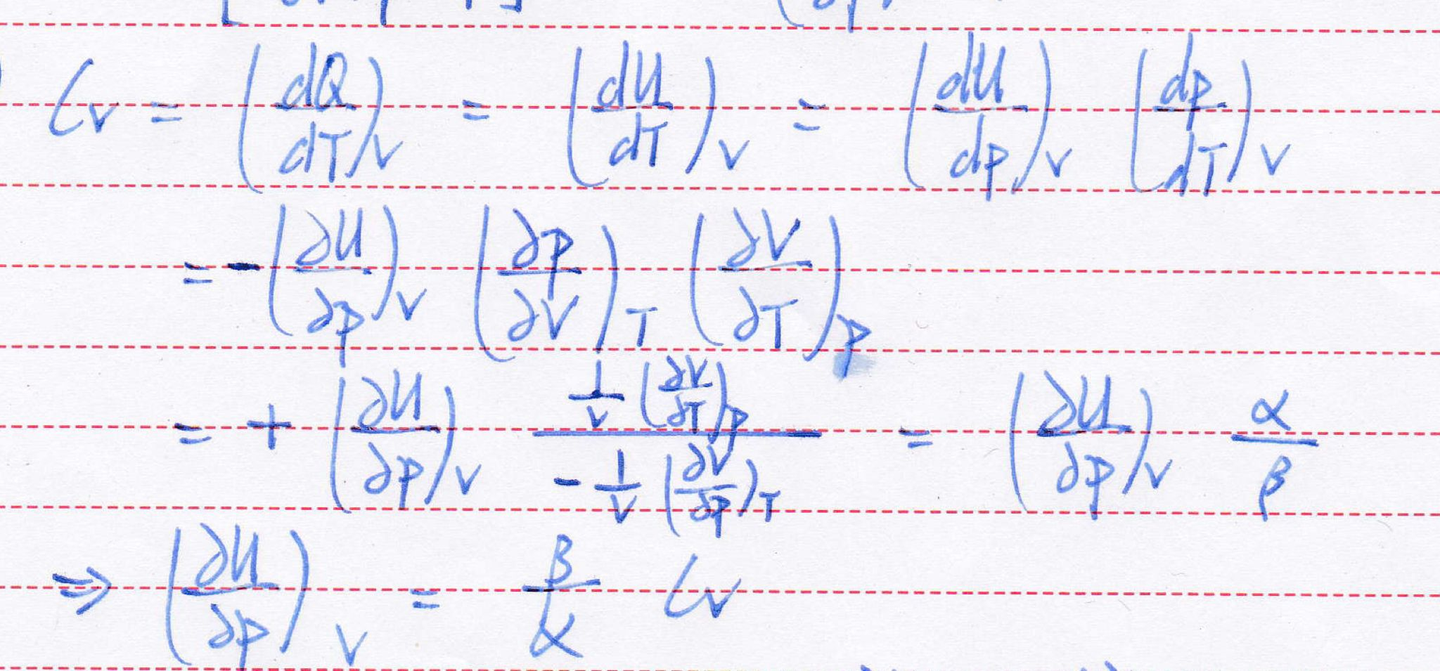 C_V = (dQ/dT)_V = (dU/dT)_V = (dU/dp)_V (dp/dT)_V
= -(∂U/∂p)_V (∂p/∂V)_T (∂V/∂T)_p
= + (∂U/∂p)_V \frac{\frac{1}{V}(∂V/∂T)_p}{-\frac{1}{V}(∂V/∂p)_T} = (∂U/∂p)_V α/β
⇒ (∂U/∂p)_V = β/α C_V